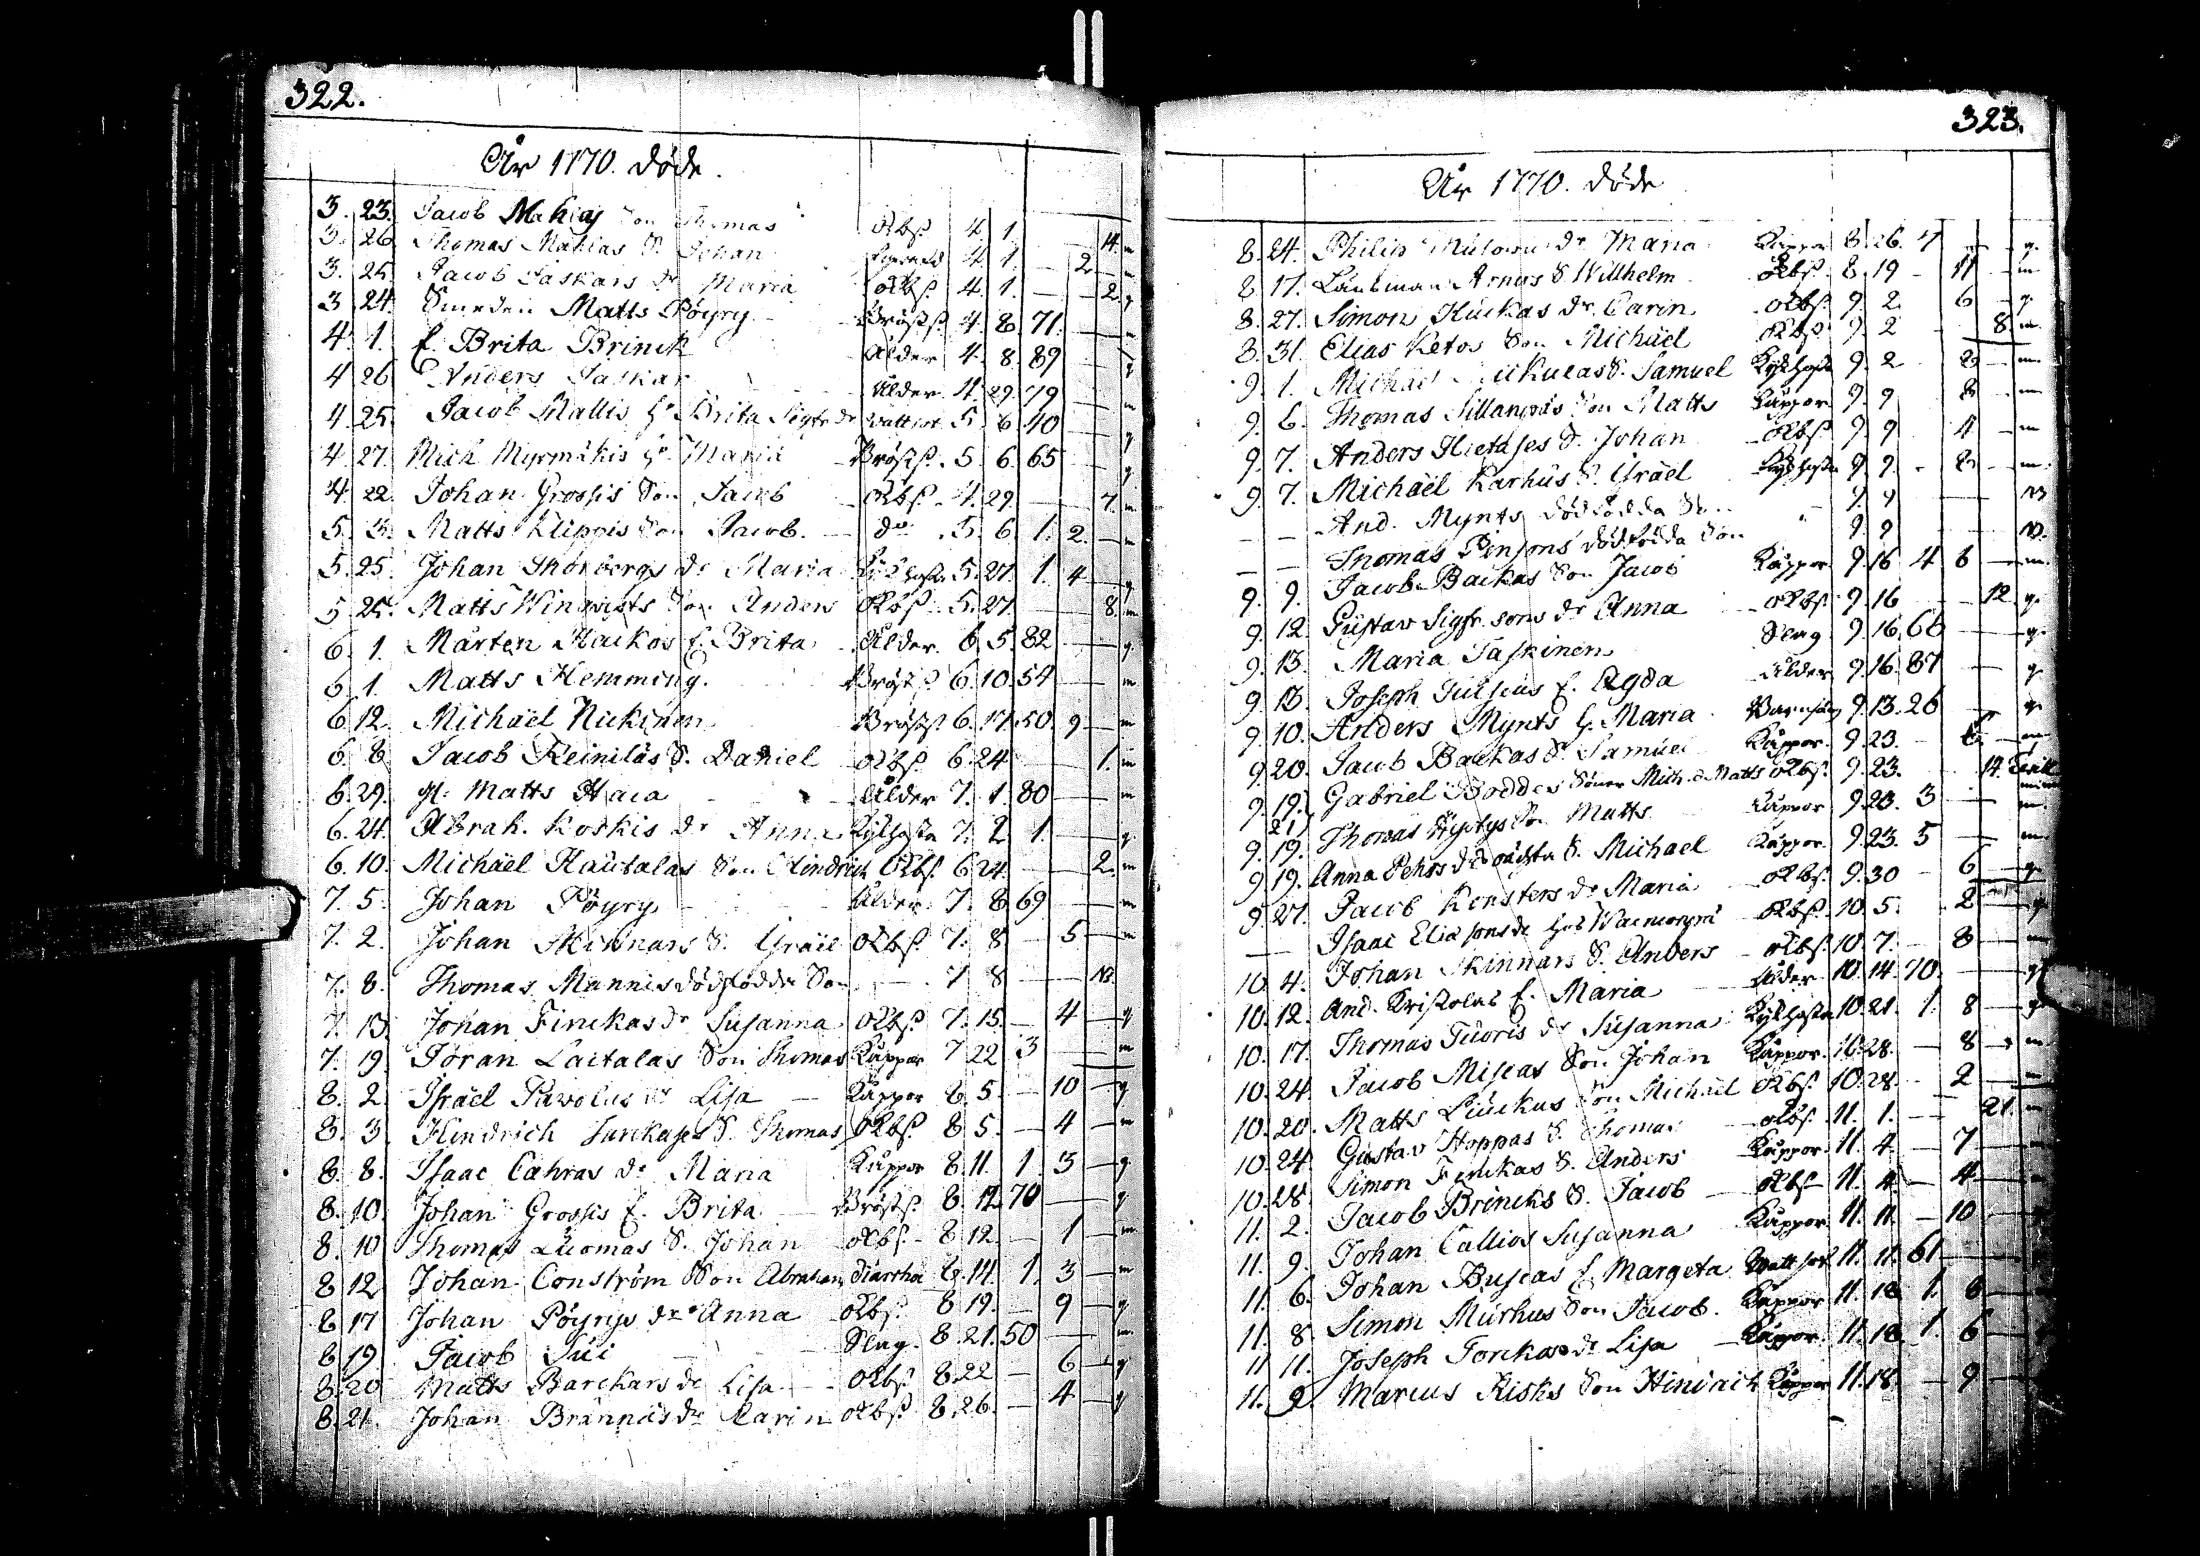 322.
År 1770. döde.
3. 23. Jacob Mathias Son Thomas Okbs. 4. 1. 14. m
3. 26. Thomas Mathias S. Johan 4. 1. 2. m
3. 25. Jacob Saskars dr Maria Okbs. 4. 1. 2. q
3 24. Smeden Matts Pöyry Bröstz. 4. 8. 71. m
4. 1. E. Brita Brinck Ålder 4. 8. 89 q
4 26 Anders Saskar Ålder 4. 29. 79 m
4. 25. Jacob Mallis h. Brita Sigfr. dr Wattsot 5. 6 40 q
4. 27. Mich Myrmäkis h. Maria Bröstz. 5. 6. 65 q.
4. 22. Johan Grossis Son Jacob Okbs. 4. 29. 7. m
5. 3. Matts Klippis Son Jacob. do 5. 6 1. 2. m
5. 25. Johan Thorbergs dr Maria Kikhosta 5. 27. 1. 4 q
5 25. Matts Winqvists Son Anders Okbs. 5. 27. 8. m
6. 1. Mårten Haikos E. Brita Ålder. 6. 5. 82 q.
6. 1. Matts Hemming. Bröstz 6. 10. 54 m
6. 12. Michäel Nickinen Bröstz. 6. 17. 50. 9 m
6. 8 Jacob Heiniläs S. Daniel Okbs. 6. 24 1. m
6. 29. gl. Matts Haia Ålder 7. 1. 80 m
6. 24. Abrah. Koskis dr Anna Kikhosta 7. 2. 1. q.
6. 10. Michäel Hautalas Son Hindrich Okbs. 6 24. 2. m
7. 5. Johan Pöyry Ålder 7. 8 69 m
7. 2. Johan Skinnars S. Israel Okbs. 7. 8 5 m
7. 8. Thomas Mannis dödfödde Son 7 8 NB
7. 13. Johan Finckas dr Susanna Okbs. 7. 15. 4 q
7. 19. Jöran Laitalas Son Thomas Kåppor 7 22 3 m
8. 2. Israel Pavolus dr Lisa Kåppor 8. 5. 10 q
8. 3. Hindrich S. Thomas Okbs. 8 5. 4 m
8. 8. Isaac Cahras dr Maria Kåppor 8. 11. 1. 3 q
8. 10. Johan Grossis E. Brita Bröstz. 8. 12. 70 q
8. 10 Thomas Luomas S. Johan Okbs. 8 12. 1 m
8 12. Johan Conström Son Abraham Diarrhea 8. 14. 1. 3 m
8 17 Johan Pöyrys dr Anna Okbs. 8 19. 9 q
8 19. Jacob Sui Slag. 8. 21. 50 m
8. 20 Matts Barckars dr Lisa Okbs. 8. 22 6 q
8. 21. Johan Brännäs dr Karin Okbs. 8. 26. 4 q
323.
År 1770. döde
8. 24. Philip dr Maria Kåppor 8. 26. 4 q.
8 17. Länsman Arnas S Willhelm Okbs. 8. 19 11 m
8. 27. Simon Huckas dr Carin Okbs. 9. 2. 6 q.
8. 31. Elias Ketos Son Michäel Okbs. 9. 2 8 m.
9. 1. Michäel S. Samuel Kikhosta 9. 2 2 m.
9. 6. Thomas Sillanpäs Son Matts Kåppor 9. 9 8 m
9. 7. Anders Hietases S. Johan Okbs. 9. 9 4 m
9. 7. Michäel Karhus S. Israel Kikhosta 9. 9. 2 m.
And. Mynts dödfödda Son 9. 9 NB
Thomas Pinsons dödfödda Son 9. 9 NB.
9. 9. Jacob Backas Son Jacob Kåppor 9. 16 4 6 m.
9. 12. Gustav Sigfr. sons dr Anna Okbs. 9. 16 12. q.
9. 13. Maria Taskinen Slag 9. 16. 66 q.
9. 13. Joseph E. Agda Ålder 9. 16. 87 q.
9. 10. Anders Mynts h. Maria Barnsäng 9. 13. 26 q.
9. 20. Jacob Backas S. Samuel Kåppor. 9. 23. 6 m
9. 19. 21. Gabriel Boddes Söner Mich. o Matts Okbs. 9. 23. 14.
9. 19. Thomas Son Matts Kåppor 9. 23. 3 m.
9. 19. Anna Pehrs drs oächta S. Michael Kåppor. 9. 23. 5 m.
9. 27. Jacob dr Maria Okbs. 9. 30 6 q
Isaac Elia sons Okbs. 10. 5. 2
10. 4. Johan Skinnars S. Anders Okbs. 10. 7. 8
10. 12. And. Kristolas E. Maria Ålder. 10. 14. 70. q
10. 17. Thomas Tuoris dr Susanna Kikhosta 10. 21. 1. 8 q
10. 24. Jacob Miscas Son Johan Kåppor. 10. 28. 8 m
10. 20. Matts Liuckus Son Michäel Okbs. 10. 28. 2
10. 24 Gustav Hoppas S. Thomas Okbs. 11. 1. 21. m
10. 28. Simon Finckas S. Anders Kåppor. 11. 4. 7
11. 2. Jacob Brincks S. Jacob Okbs. 11. 4. 4.
11. 9. Johan Callios Susanna Kåppor 11. 11. 10
11. 6. Johan Buscas E. Margeta Wattsot 11. 11. 61
11. 8. Simon Murkus Son Jacob. Kåppor 11. 18. 1. 8
11 11. Joseph Torckas dr Lisa Kåppor. 11. 18. 1. 6
11. 9. Marcus Risks Son Hindrich Kåppor 11. 18. 9